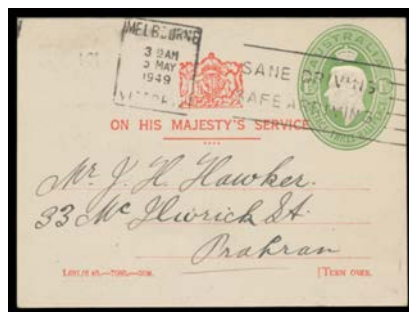 MELBOURNE
3 30AM
MAY
1949
SANE DRIVING
SAFE ARRIVING
AUSTRALIA
ON HIS MAJESTY'S SERVICE
Mr. J. H. Hawker.
33 Mc Ilwrick St.
Prahran
[TURN OVER.